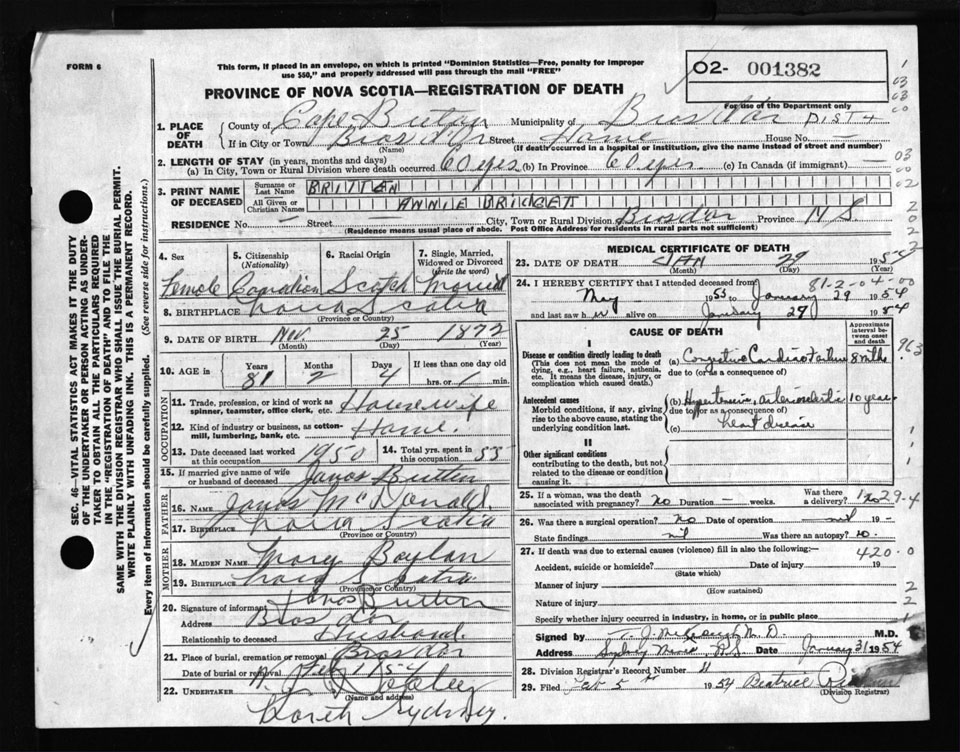 FORM 6
This form, if placed in an envelope, on which is printed "Dominion Statistics—Free, penalty for improper
use $50," and properly addressed will pass through the mail "FREE"
PROVINCE OF NOVA SCOTIA—REGISTRATION OF DEATH
02- 001382
For use of the Department only
1. PLACE OF DEATH
County of Cape Breton Municipality of Bras d'Or DIST 4
If in City or Town Bras d'Or Street Home House No. —
(Name) (If death occurred in a hospital or institution, give the name instead of street and number)
2. LENGTH OF STAY (in years, months and days)
(a) In City, Town or Rural Division where death occurred 60 yrs (b) In Province 60 yrs (c) In Canada (if immigrant) —
3. PRINT NAME OF DECEASED
Surname or Last Name BRITTEN
All Given or Christian Names ANNIE BRIDGET
RESIDENCE No. Street — City, Town or Rural Division Bras d'or Province N S.
(Residence means usual place of abode. Post Office Address for residents in rural parts not sufficient)
SEC. 46—VITAL STATISTICS ACT MAKES IT THE DUTY
OF THE UNDERTAKER OR PERSON ACTING AS UNDER-
TAKER TO OBTAIN ALL THE PARTICULARS REQUIRED
IN THE "REGISTRATION OF DEATH" AND TO FILE THE
SAME WITH THE DIVISION REGISTRAR WHO SHALL ISSUE THE BURIAL PERMIT.
WRITE PLAINLY WITH UNFADING INK. THIS IS A PERMANENT RECORD.
Every item of information should be carefully supplied. (See reverse side for instructions.)
4. Sex 5. Citizenship (Nationality) 6. Racial Origin 7. Single, Married, Widowed or Divorced (write the word)
Female Canadian Scotch Married
8. BIRTHPLACE Nova Scotia
(Province or Country)
9. DATE OF BIRTH Nov. 25 1872
(Month) (Day) (Year)
10. AGE in Years Months Days If less than one day old
81 2 4 hrs. or min.
OCCUPATION
11. Trade, profession, or kind of work as spinner, teamster, office clerk, etc. Housewife
12. Kind of industry or business, as cotton-mill, lumbering, bank, etc. Home.
13. Date deceased last worked at this occupation 1950 14. Total yrs. spent in this occupation 55
15. If married give name of wife or husband of deceased James Britten
FATHER
16. NAME James McDonald.
17. BIRTHPLACE Nova Scotia
(Province or Country)
MOTHER
18. MAIDEN NAME Mary Boylan
19. BIRTHPLACE Nova Scotia
(Province or Country)
20. Signature of informant James Britten
Address Bras d'or
Relationship to deceased Husband.
21. Place of burial, cremation or removal Bras d'or
Date of burial or removal Feb 1 54
22. UNDERTAKER
(Name and address)
North Sydney.
MEDICAL CERTIFICATE OF DEATH
23. DATE OF DEATH JAN 29 195
(Month) (Day) (Year)
81-2-04-00
24. I HEREBY CERTIFY that I attended deceased from
May 1953 to January 29 1954
and last saw h alive on January 29 1954
CAUSE OF DEATH
Approximate interval between onset and death
I
Disease or condition directly leading to death
(This does not mean the mode of dying, e.g., heart failure, asthenia, etc. It means the disease, injury, or complication which caused death.)
(a) Congestive Cardiac Failure 8 mths
due to (or as a consequence of)
Antecedent causes
Morbid conditions, if any, giving rise to the above cause, stating the underlying condition last.
(b) Hypertensive, arteriosclerotic 10 years
due to (or as a consequence of)
(c) heart disease
II
Other significant conditions
contributing to the death, but not related to the disease or condition causing it.
25. If a woman, was the death associated with pregnancy? no Duration — weeks. Was there a delivery? no
29-4
26. Was there a surgical operation? no Date of operation nil 19 -
State findings nil Was there an autopsy? no.
27. If death was due to external causes (violence) fill in also the following:—
420.0
Accident, suicide or homicide? Date of injury 19
(State which)
Manner of injury
(How sustained)
Nature of injury
Specify whether injury occurred in industry, in home, or in public place
Signed by M. D. M.D.
Address Sydney Mines N.S. Date January 31 1954
28. Division Registrar's Record Number 4
29. Filed Feb 5 1954 Beatrice
(Division Registrar)